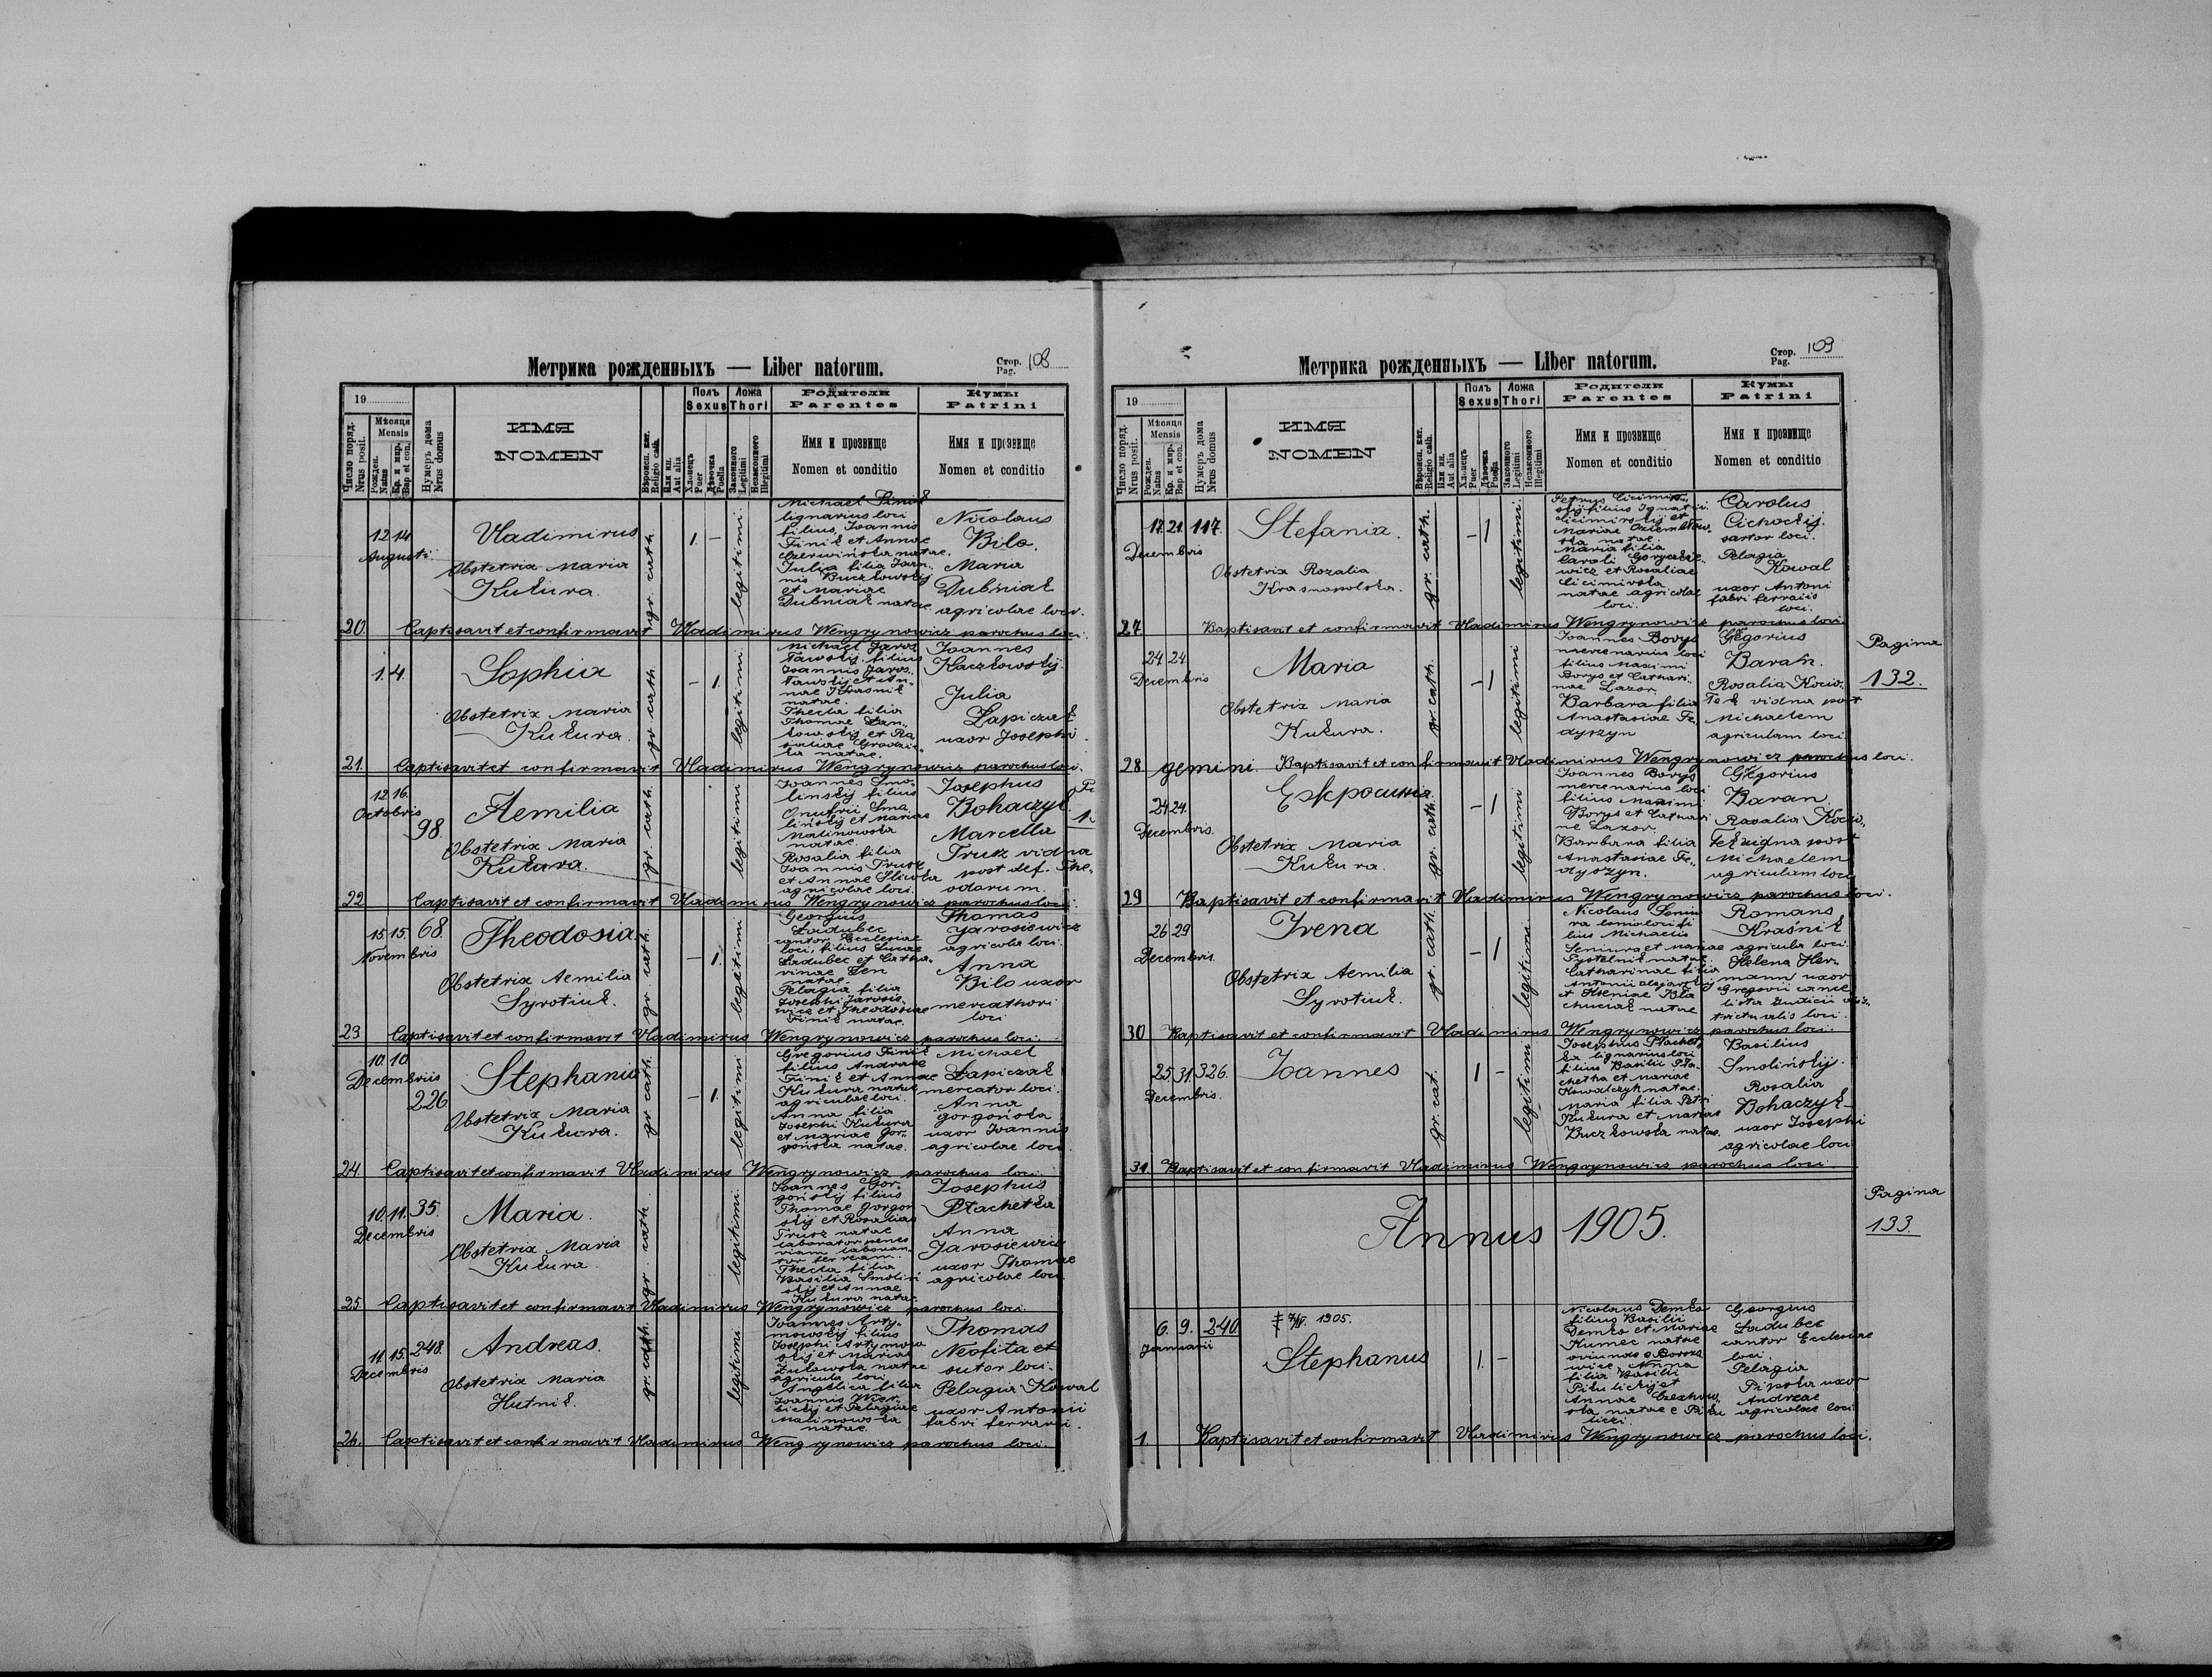 Метрика рожденныхъ — Liber natorum.
Стор. Pag. 108
19
Число поряд. Nrus posit.
Мѣсяця Mensis
Рожден. Natus
Кр. и мир. Bap et con.
Нумеръ дома Nrus domus
ИМЯ
NOMEN
Вѣроисп. кат. Religio cath.
Или ин. Aut alia
Полъ Sexus
Хлопецъ Puer
Дѣвочка Puella
Ложа Thori
Законного Legitimi
Незаконного Illegitimi
Родители
Parentes
Имя и прозвище
Nomen et conditio
Кумы
Patrini
Имя и прозвище
Nomen et conditio
12 14
Augusti
Vladimirus
Obstetrix Maria
Kukura.
gr. cath.
1 –
legitimi.
lignarius loci
filius Joannis
Finik et Annae
Czerwińska natae.
Julia filia Joan-
nis Buczkowskij
et Mariae
Dubniak natae
Nicolaus
Bilo.
Maria
Dubniak
agricolae loci.
20. Baptisavit et confirmavit Vladimirus Wengrynowicz parochus loci.
1. 4.
Sophia
Obstetrix Maria
Kukura.
gr cath
– 1.
legitimi
Michael Jaros-
ławskij filius
Joannis Jaros-
nae Krasnik
natae.
Thecla filia
Joannes
Kaczkowskij.
Julia
Łapiczak
uxor Josephi
21. Baptisavit et confirmavit Vladimirus Wengrynowicz parochus loci.
12 16.
Octobris
98.
Aemilia
Obstetrix Maria
Kukura.
gr. cath.
legitimi
Joannes Smo-
linskij filius
Onufrii Smo
lińskij et Mariae
Malinowska
natae.
Rosalia filia
Joannis Trusz
et Annae Sliwka
agricolae loci.
Josephus
Bohaczyk
Marcella
Trusz vidua
post def. The-
odorum.
22 Baptisavit et confirmavit Vladimirus Wengrynowicz parochus loci.
15 15. 68.
Novembris
Theodosia
Obstetrix Aemilia
Syrotiuk.
gr. cath.
– 1.
legitimi
Georgius
Ładubec
cantor Ecclesiae
loci, filius Lucae
Ładubec et Catha-
rinae Sen
natae.
Pelagia filia
Josephi Jarosie-
wicz et Theodosiae
Finik natae.
Thomas
Jarosiewicz
agricola loci.
Anna
Bilo uxor
mercathori
loci
23 Baptisavit et confirmavit Vladimirus Wengrynowicz parochus loci.
10 10
Decembris
226
Stephania
Obstetrix Maria
Kukura.
gr cath.
– 1
legitimi
Gregorius Finik
filius Andreae
Finik et Annae
Kukura natae
agricolae loci.
Anna filia
Josephi Kukura
et Mariae Gor-
gońska natae.
Michael
Łapiczak
mercator loci.
Anna
Gorgońska
uxor Joannis
agricolae loci
24. Baptisavit et confirmavit Vladimirus Wengrynowicz parochus loci.
10. 11. 35.
Decembris
Maria.
Obstetrix Maria
Kukura
gr cath.
legitimi.
Joannes Gor-
gońskij filius
Thomae Gorgoń
skij et Rosaliae
Trusz natae
Thecla filia
Basilia Smoliń
skij et Annae
Kukura natae
Josephus
Ptachetka
Anna
Jarosiewicz
uxor Thomae
agricolae loci
25. Baptisavit et confirmavit Vladimirus Wengrynowicz parochus loci.
11. 15. 248.
Decembris
Andreas.
Obstetrix Maria
Hutnik.
gr. cath.
legitimi.
Joannes Arty-
mowskij filius
Josephi Artymow
skij et Mariae
Żukowska natae
agricula loci
Angelica filia
bickij et Pelagiae
Malinowska
natae.
Thomas
Neofita et
sutor loci.
Pelagia Kowal
uxor Antonii
fabri ferrarii.
26. Baptisavit et confirmavit Vladimirus Wengrynowicz parochus loci.
Метрика рожденныхъ — Liber natorum.
Стор. Pag. 109
19
Число поряд. Nrus posit.
Мѣсяця Mensis
Рожден. Natus
Кр. и мир. Bap et con.
Нумеръ дома Nrus domus
ИМЯ
NOMEN
Вѣроисп. кат. Religio cath.
Или ин. Aut alia
Полъ Sexus
Хлопецъ Puer
Дѣвочка Puella
Ложа Thori
Законного Legitimi
Незаконного Illegitimi
Родители
Parentes
Имя и прозвище
Nomen et conditio
Кумы
Patrini
Имя и прозвище
Nomen et conditio
17. 21. 117.
Decembris
Stefania.
Obstetrix Rozalia
Krasnopolska.
gr. cath.
– 1
legitimi.
Maria filia
wicz et Rosaliae
natae agricolae
loci.
Carolus
Cichockij.
sartor loci.
Pelagia
Kowal
uxor Antoni
fabri ferrariis
loci.
27. Baptisavit et confirmavit Vladimirus Wengrynowicz parochus loci
24 24
Decembris
Maria
Obstetrix Maria
Kukura.
gr. cath.
– 1
legitimi
Joannes Borys
mercenarius loci
filius Maximi
Borys et Cathari-
nae Lazor.
Barbara filia
Anastasiae Fe-
dyszyn
Gregorius
Baran.
Rosalia Kocio-
łek vidua post
Michaelem
agricolam loci.
Pagina
132.
28 gemini. Baptisavit et confirmavit Vladimirus Wengrynowicz parochus loci.
24 24.
Decembris.
Obstetrix Maria
Kukura.
gr. cath.
– 1
legitimi
Joannes Borys
mercenarius loci
filius Maximi
Borys et Cathari
ne Lazor.
Barbara filia
Anastasiae Fe-
dyszyn.
Gregorius
Baran
Rosalia Kocio-
post
Michaelem
agriculam loci
29 Baptisavit et confirmavit Vladimirus Wengrynowicz parochus loci.
26 29
Decembris.
Irena
Obstetrix Aemilia
Syrotiuk.
gr. cath.
– 1
legitimi.
Nicolaus Seniu
lius Michaelis
Seniura et Mariae
Catharinae filia
Romans
Kraśnik
agricula loci.
Helena Her-
mann uxor
Gregorii cance
trictualis loci.
30 Baptisavit et confirmavit Vladimirus Wengrynowicz parochus loci.
25. 31. 326.
Decembris.
Joannes
gr. cat.
1 –
legitimi
Josephus Ptachet-
ka lignarius loci
filius Basilii Pta-
chetka et Mariae
Kowalczyk natae.
Maria filia Petri
Kukura et Marias
Buczkowska natae.
Basilius
Smolińskij.
Rosalia
Bohaczyk
uxor Josephi
agricolae loci
31. Baptisavit et confirmavit Vladimirus Wengrynowicz parochus loci
Annus 1905.
Pagina
133.
6. 9. 240
Januarii
1905.
Stephanus
1. –
Nicolaus Demko
filius Basilii
Demko et Mariae
Kumec natae
filia Basilii
Georgius
Ładubec
cantor Ecclesiae
loci.
Pelagia
Pipska uxor
Andreae
agricolae loci
1. Baptisavit et confirmavit Vladimirus Wengrynowicz parochus loci.